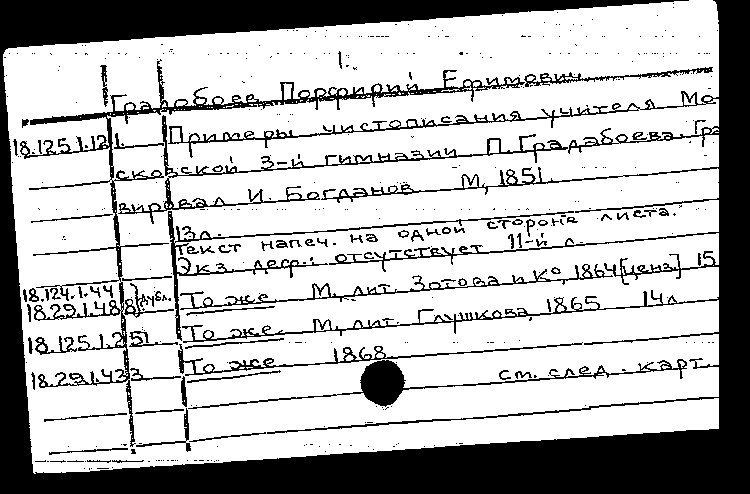 1.
Градобоев, Порфирий Ефимович
18.125.1.121. Примеры чистописания учителя Мо-
сковской 3-й гимназии П. Градабоева. Гра
вировал И. Богданов М, 1851.
13 л.
Текст напеч. на одной стороне листа.
Экз. деф.: отсутствует 11-й л.
18.124.1.44
18.29.1.488 } дубл. То же М, лит. Зотова и К°, 1864 [ценз.] 15
18.125.1.251. То же. М, лит. Глушкова, 1865 14 л
18.29.1.433 То же 1868.
см. след. карт